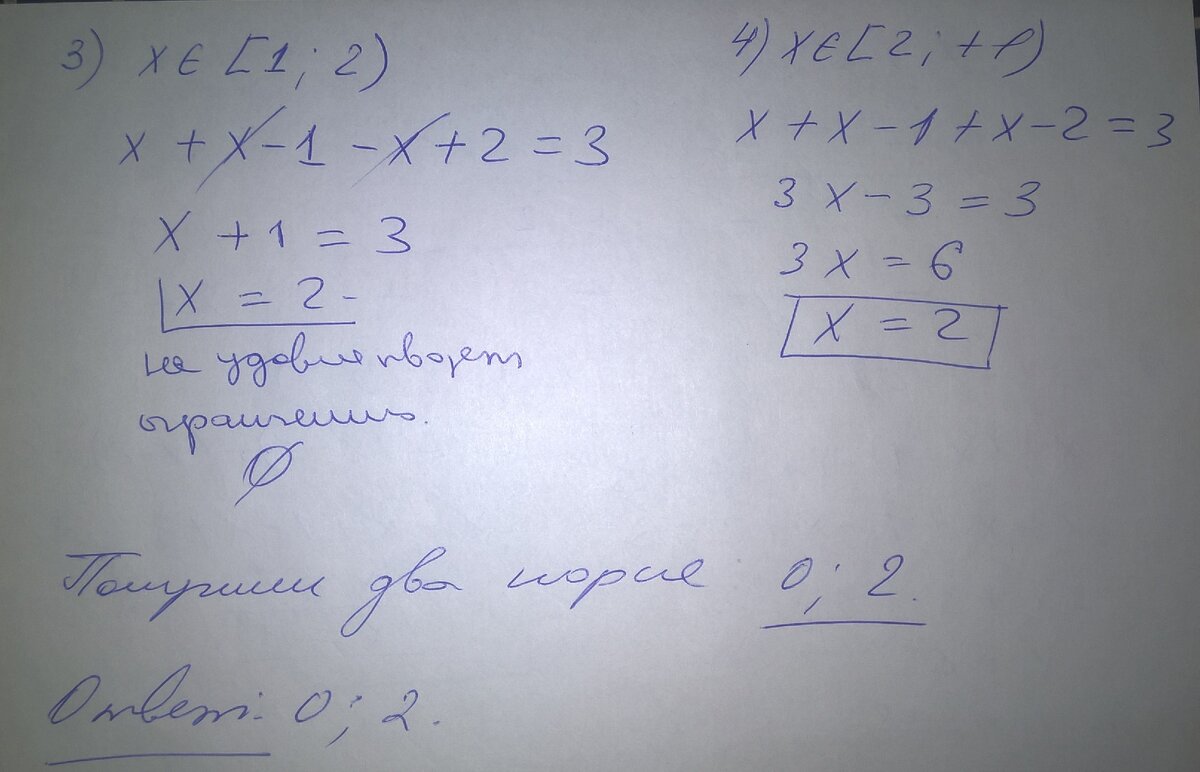 3) x ∈ [1; 2)
x + x - 1 - x + 2 = 3
x + 1 = 3
x = 2 -
не удовлетворяет
ограничению.
∅
4) x ∈ [2; +∞)
x + x - 1 + x - 2 = 3
3x - 3 = 3
3x = 6
x = 2
Получили два корня 0; 2.
Ответ: 0; 2.